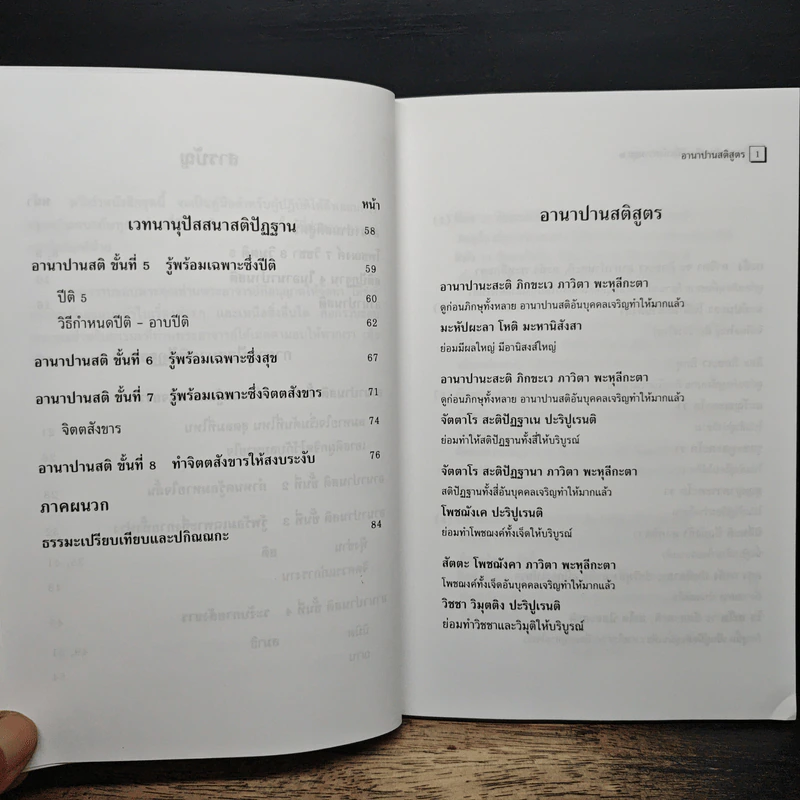 หน้า
เวทนานุปัสสนาสติปัฏฐาน 58
อานาปานสติ ขั้นที่ 5 รู้พร้อมเฉพาะซึ่งปีติ 59
ปีติ 5 60
วิธีกำหนดปีติ - อาบปีติ 62
อานาปานสติ ขั้นที่ 6 รู้พร้อมเฉพาะซึ่งสุข 67
อานาปานสติ ขั้นที่ 7 รู้พร้อมเฉพาะซึ่งจิตตสังขาร 71
จิตตสังขาร 74
อานาปานสติ ขั้นที่ 8 ทำจิตตสังขารให้สงบระงับ 76
ภาคผนวก
ธรรมะเปรียบเทียบและปกิณณกะ 84
อานาปานสติสูตร 1
อานาปานสติสูตร
อานาปานะสะติ ภิกขะเว ภาวิตา พะหุลีกะตา
ดูก่อนภิกษุทั้งหลาย อานาปานสติอันบุคคลเจริญทำให้มากแล้ว
มะหัปผะลา โหติ มะหานิสังสา
ย่อมมีผลใหญ่ มีอานิสงส์ใหญ่
อานาปานะสะติ ภิกขะเว ภาวิตา พะหุลีกะตา
ดูก่อนภิกษุทั้งหลาย อานาปานสติอันบุคคลเจริญทำให้มากแล้ว
จัตตาโร สะติปัฏฐาเน ปะริปูเรนติ
ย่อมทำให้สติปัฏฐานทั้งสี่ให้บริบูรณ์
จัตตาโร สะติปัฏฐานา ภาวิตา พะหุลีกะตา
สติปัฏฐานทั้งสี่อันบุคคลเจริญทำให้มากแล้ว
โพชฌังเค ปะริปูเรนติ
ย่อมทำโพชฌงค์ทั้งเจ็ดให้บริบูรณ์
สัตตะ โพชฌังคา ภาวิตา พะหุลีกะตา
โพชฌงค์ทั้งเจ็ดอันบุคคลเจริญทำให้มากแล้ว
วิชชา วิมุตติง ปะริปูเรนติ
ย่อมทำวิชชาและวิมุติให้บริบูรณ์